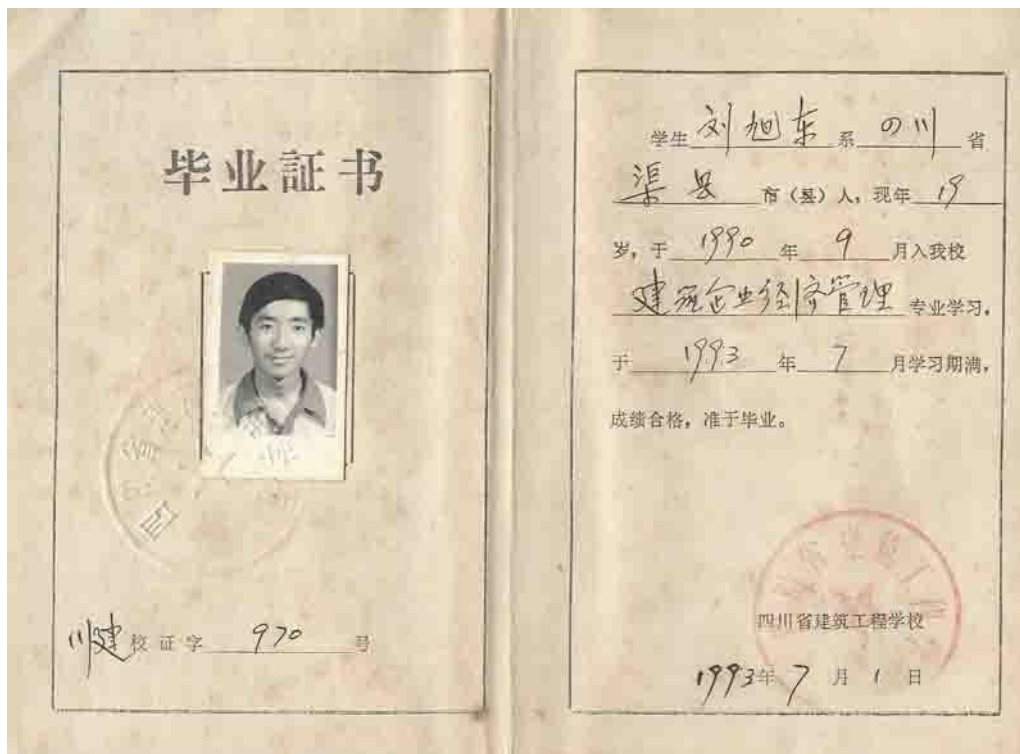 毕业証书
川建校证字 970 号
学生 刘旭东 系 四川 省
渠县 市（县）人，现年 19
岁，于 1990 年 9 月入我校
建筑企业经济管理 专业学习，
于 1993 年 7 月学习期满，
成绩合格，准于毕业。
四川省建筑工程学校
1993年 7 月 1 日